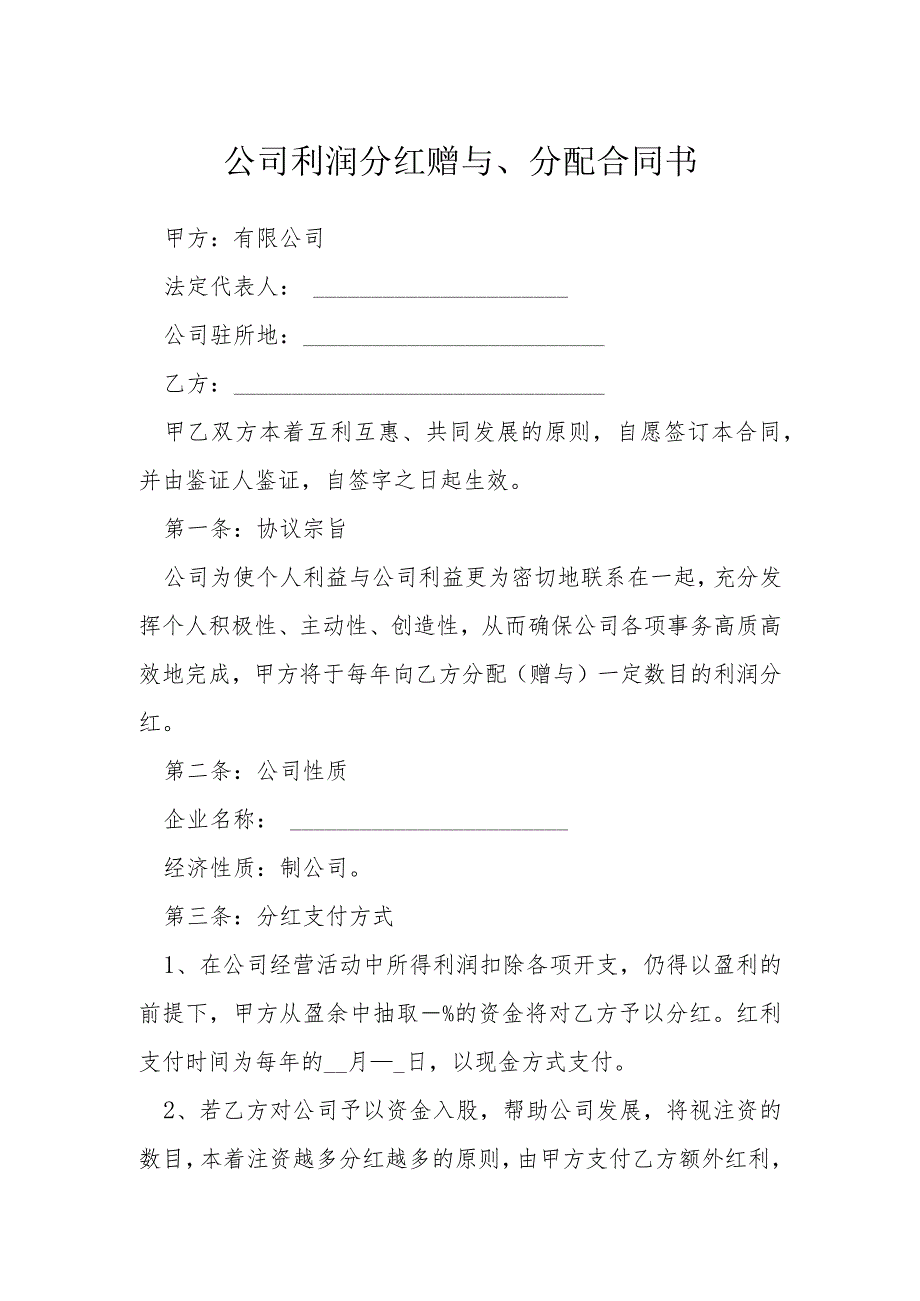 公司利润分红赠与、分配合同书
甲方：有限公司
法定代表人：______________________
公司驻所地：__________________________
乙方：________________________________
甲乙双方本着互利互惠、共同发展的原则，自愿签订本合同，
并由鉴证人鉴证，自签字之日起生效。
第一条：协议宗旨
公司为使个人利益与公司利益更为密切地联系在一起，充分发
挥个人积极性、主动性、创造性，从而确保公司各项事务高质高
效地完成，甲方将于每年向乙方分配（赠与）一定数目的利润分
红。
第二条：公司性质
企业名称：________________________
经济性质：制公司。
第三条：分红支付方式
1、在公司经营活动中所得利润扣除各项开支，仍得以盈利的
前提下，甲方从盈余中抽取－%的资金将对乙方予以分红。红利
支付时间为每年的__月—_日，以现金方式支付。
2、若乙方对公司予以资金入股，帮助公司发展，将视注资的
数目，本着注资越多分红越多的原则，由甲方支付乙方额外红利，